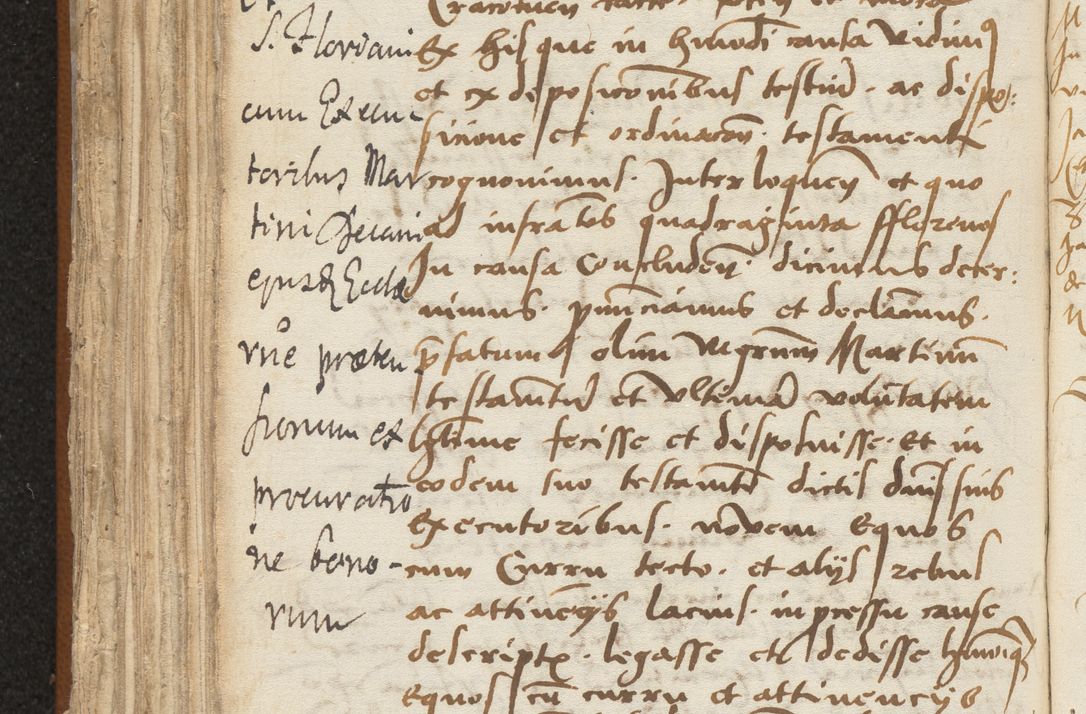 S. Floriani
cum Execu
toribus Mar
tini Decani
ejusdem Eccl
racione
sionum et
procuratio
ne bono-
rum
Ex his que in hmodi causa vidimus
et ex disposiconibus testium. ac dispo:
sicione et ordinacon. testamenti
cognovimus. Interloquen et quo
ad infratos quadraginta fflorenos
In causa Concluden. dicimus deter:
minimus. pronunciamus et declaramus.
prefatum olim vegrum Martinum
testamentum et ultimam voluntatem
legitime fecisse et disposuisse. Et in
eodem suo testamento dictis dnis suis
Executoribus. novem Equos
cum Curru tecto. et alijs rebus
ac attinencijs lacius. in processu cause
descriptis. legasse et dedisse hmoiq
Equos cum curru et attinencijs